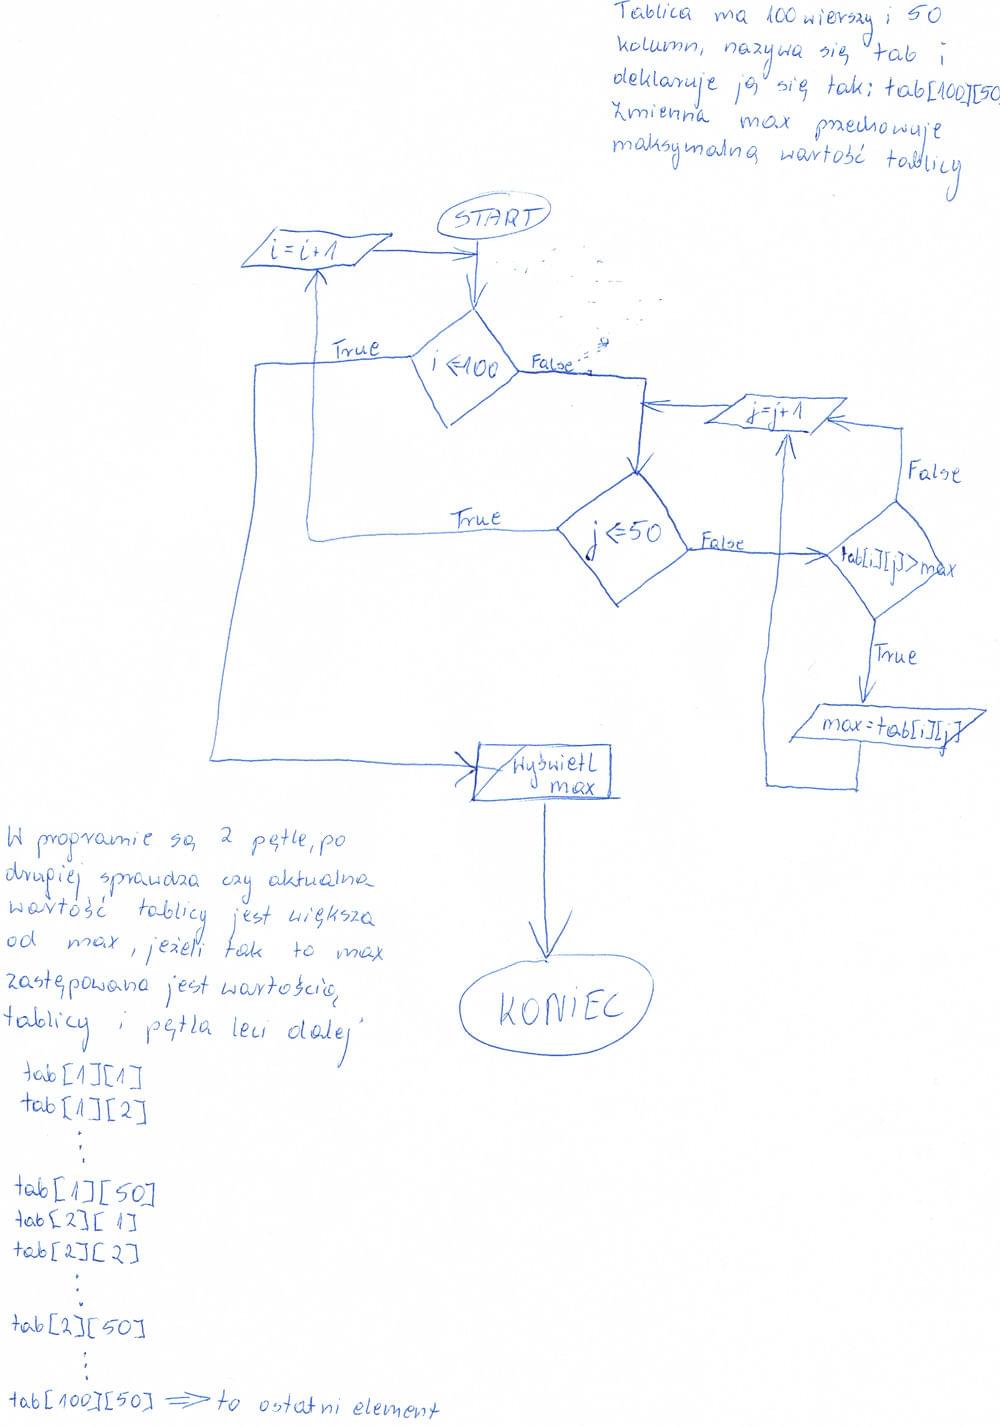 Tablica ma 100 wierszy i 50
kolumn, nazywa się tab i
deklaruje ją się tak: tab[100][50
Zmienna max przechowuje
maksymalną wartość tablicy
START
i=i+1
True
i<=100
False
j=j+1
False
True
j<=50
False
tab[i][j]>max
True
max=tab[i][j]
Wyświetl
max
W programie są 2 pętle, po
drugiej sprawdza czy aktualna
wartość tablicy jest większa
od max, jeżeli tak to max
zastępowana jest wartością
tablicy i pętla leci dalej
KONIEC
tab[1][1]
tab[1][2]
tab[1][50]
tab[2][1]
tab[2][2]
tab[2][50]
tab[100][50] => to ostatni element